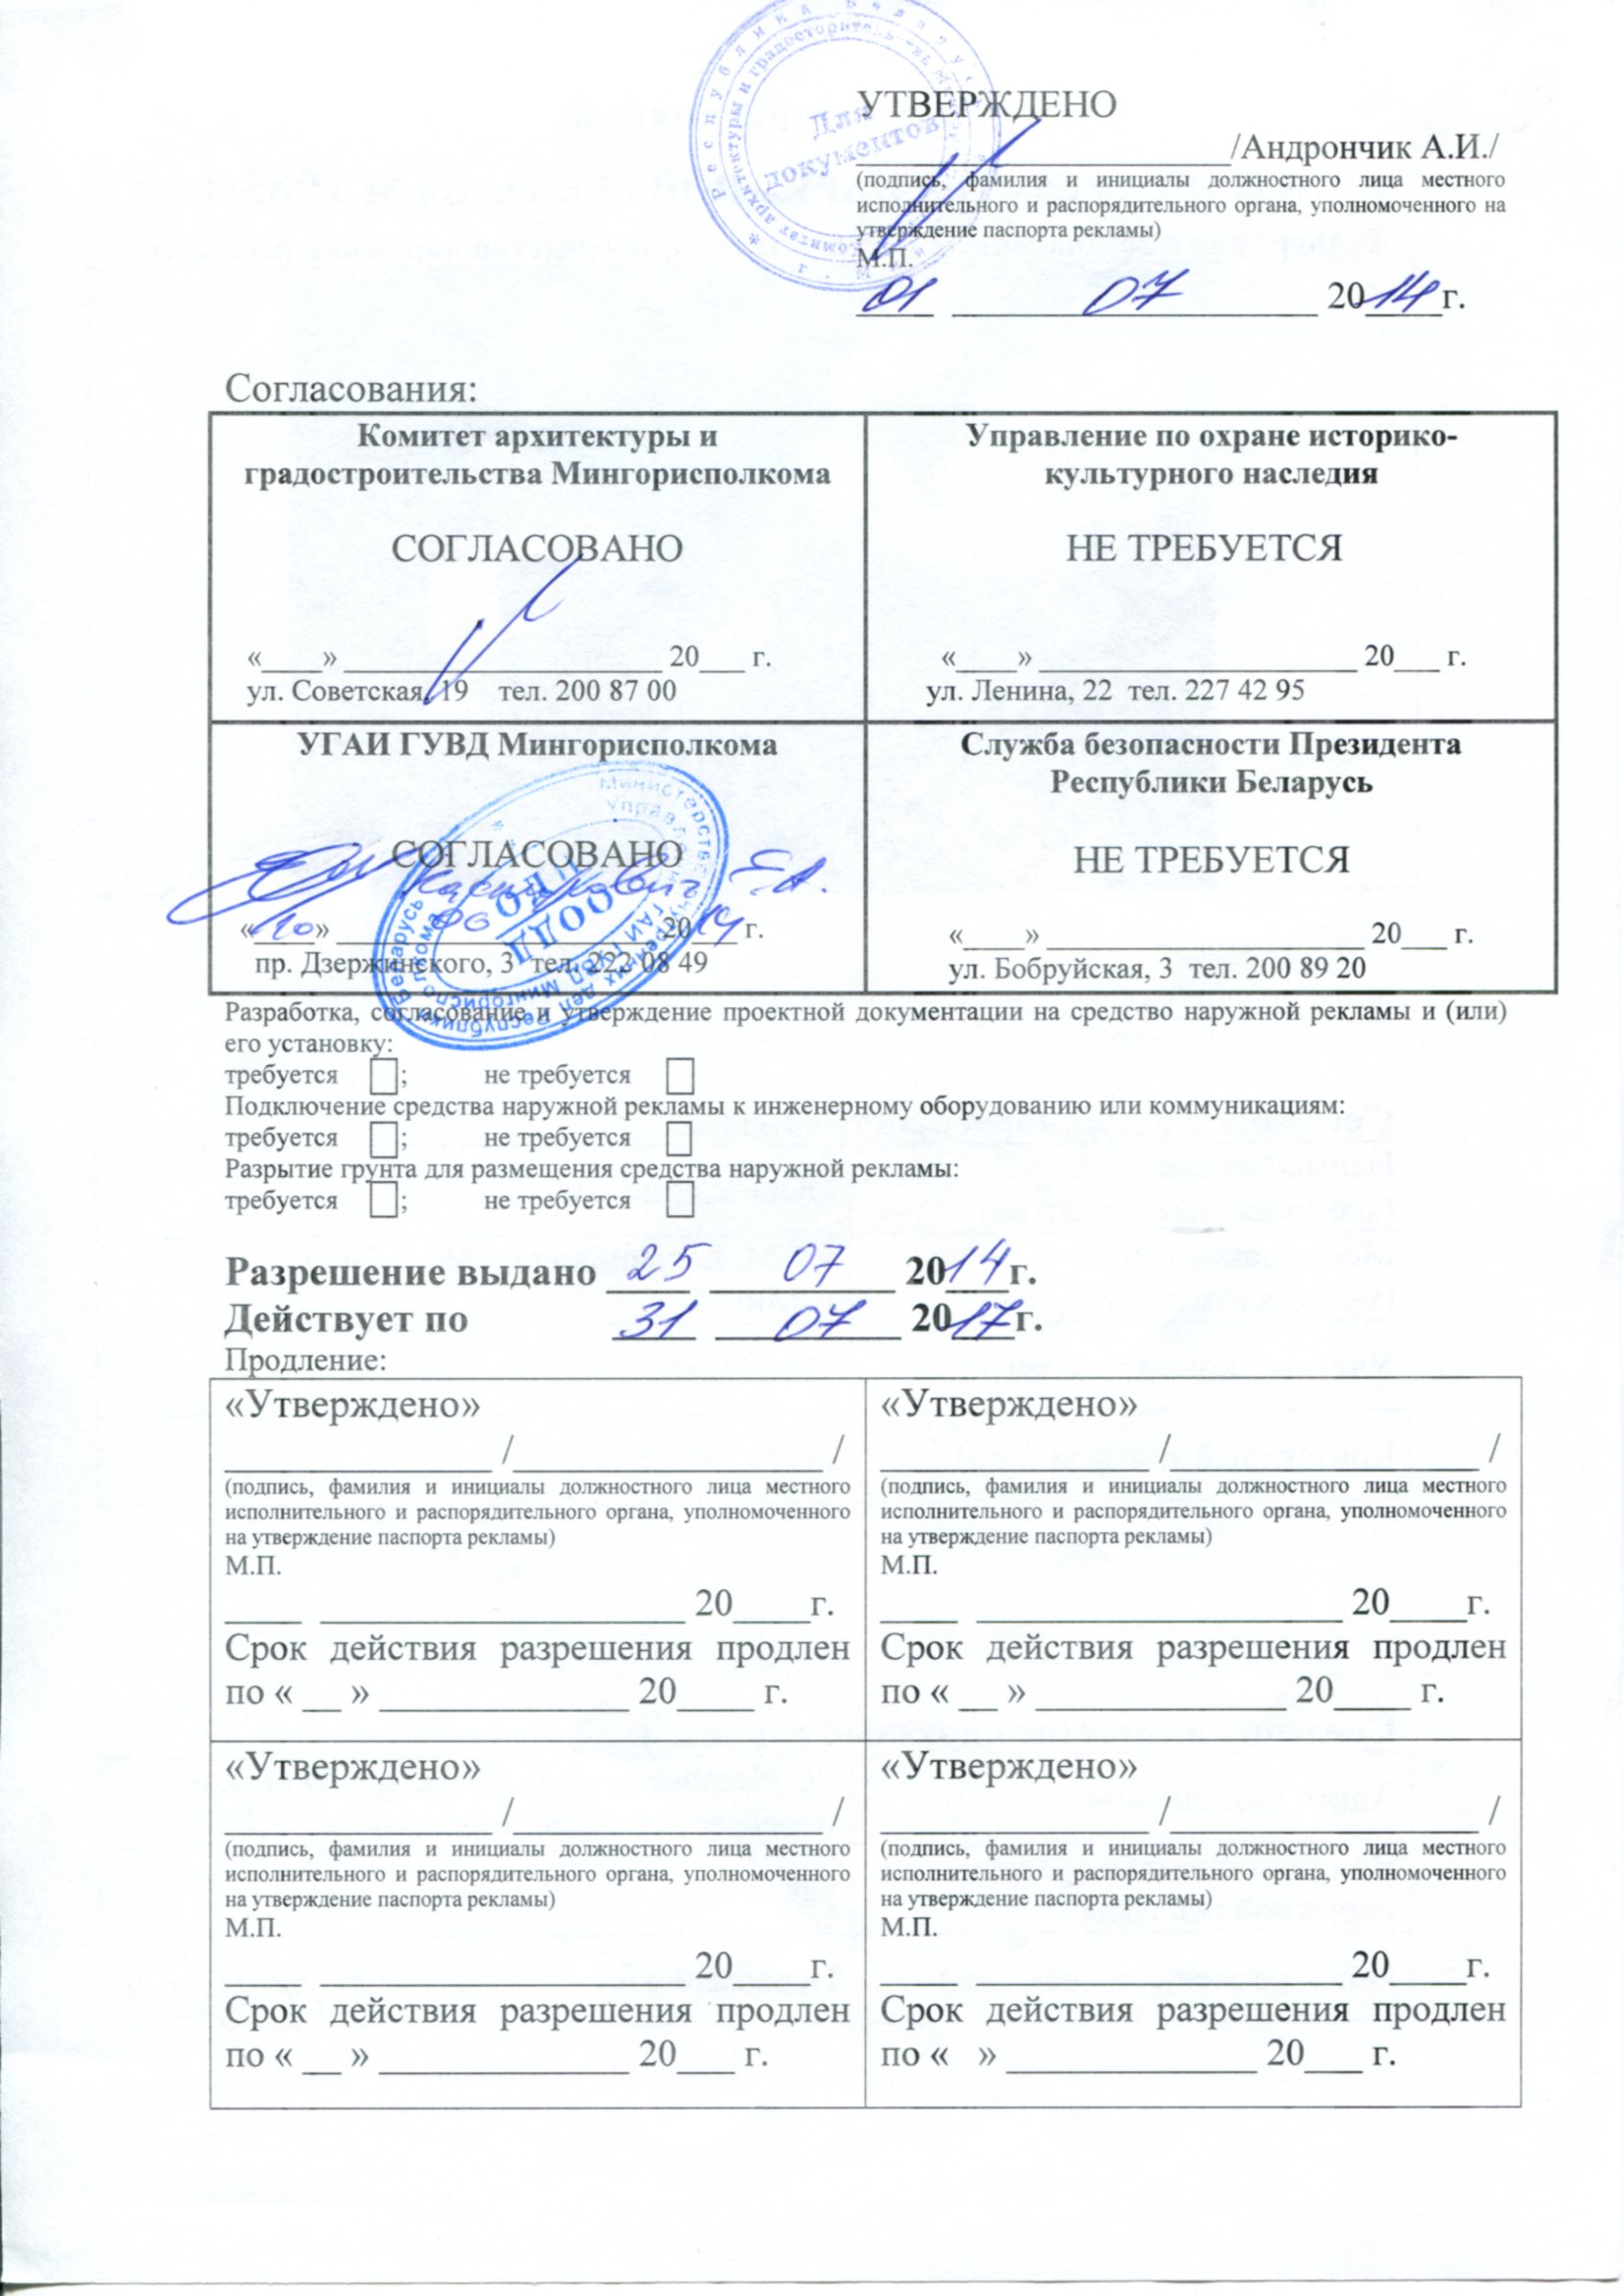 УТВЕРЖДЕНО
/Андрончик А.И./
(подпись, фамилия и инициалы должностного лица местного
исполнительного и распорядительного органа, уполномоченного на
утверждение паспорта рекламы)
М.П.
01 07 2014г.
Республика Беларусь
Для
документов
Согласования:
Комитет архитектуры и
градостроительства Мингорисполкома
СОГЛАСОВАНО
«____» ____________________ 20___ г.
ул. Советская, 19 тел. 200 87 00
Управление по охране историко-
культурного наследия
НЕ ТРЕБУЕТСЯ
«____» ____________________ 20___ г.
ул. Ленина, 22 тел. 227 42 95
УГАИ ГУВД Мингорисполкома
СОГЛАСОВАНО
Е.А.
«10» 06 2014 г.
пр. Дзержинского, 3 тел. 222 08 49
ООДД
Служба безопасности Президента
Республики Беларусь
НЕ ТРЕБУЕТСЯ
«____» ____________________ 20___ г.
ул. Бобруйская, 3 тел. 200 89 20
Разработка, согласование и утверждение проектной документации на средство наружной рекламы и (или)
его установку:
требуется ; не требуется
Подключение средства наружной рекламы к инженерному оборудованию или коммуникациям:
требуется ; не требуется
Разрытие грунта для размещения средства наружной рекламы:
требуется ; не требуется
Разрешение выдано 25 07 2014г.
Действует по 31 07 2017г.
Продление:
«Утверждено»
______________ /________________ /
(подпись, фамилия и инициалы должностного лица местного
исполнительного и распорядительного органа, уполномоченного
на утверждение паспорта рекламы)
М.П.
____ ___________________ 20____г.
Срок действия разрешения продлен
по « __ » _____________ 20____ г.
«Утверждено»
______________ /________________ /
(подпись, фамилия и инициалы должностного лица местного
исполнительного и распорядительного органа, уполномоченного
на утверждение паспорта рекламы)
М.П.
____ ___________________ 20____г.
Срок действия разрешения продлен
по « __ » _____________ 20____ г.
«Утверждено»
______________ /________________ /
(подпись, фамилия и инициалы должностного лица местного
исполнительного и распорядительного органа, уполномоченного
на утверждение паспорта рекламы)
М.П.
____ ___________________ 20____г.
Срок действия разрешения продлен
по « __ » _____________ 20___ г.
«Утверждено»
______________ /________________ /
(подпись, фамилия и инициалы должностного лица местного
исполнительного и распорядительного органа, уполномоченного
на утверждение паспорта рекламы)
М.П.
____ ___________________ 20____г.
Срок действия разрешения продлен
по «   » _____________ 20___ г.